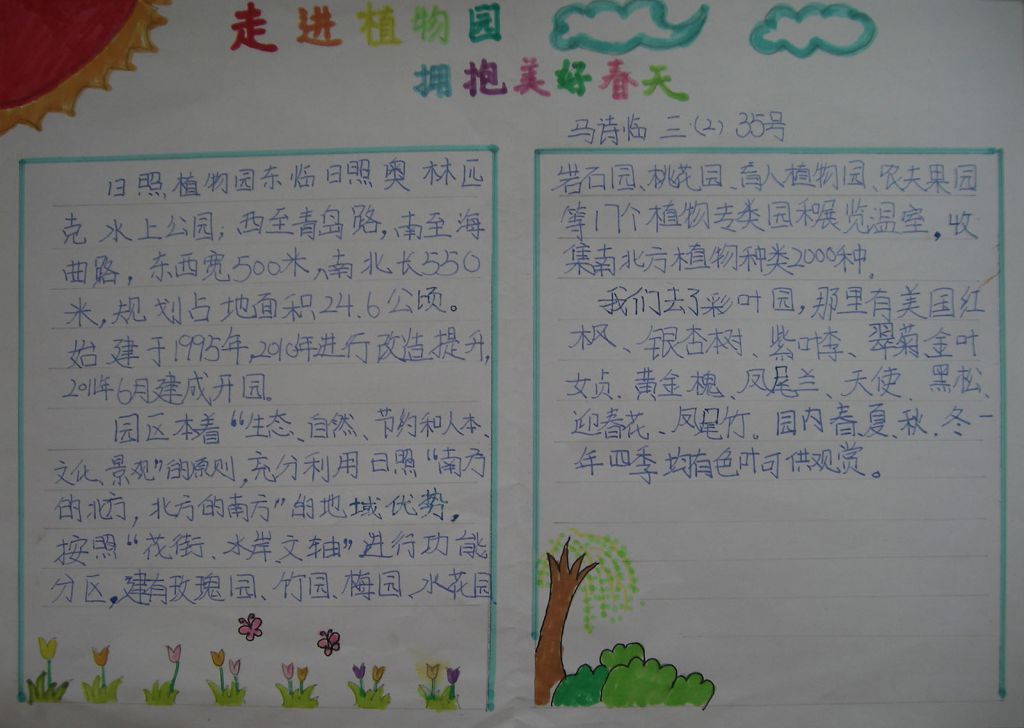 走进植物园
拥抱美好春天
马诗临 三·(2) 35号
日照植物园东临日照奥林匹
克水上公园；西至青岛路，南至海
曲路，东西宽500米、南北长550
米，规划占地面积24.6公顷。
始建于1995年，2010年进行改造提升，
2011年6月建成开园。
园区本着“生态、自然、节约和人本、
文化、景观”的原则，充分利用日照“南方
的北方，北方的南方”的地域优势，
按照“花街、水岸、文轴”进行功能
分区，建有玫瑰园、竹园、梅园、水花园、
岩石园、桃花园、盲人植物园、农夫果园
等17个植物专类园和展览温室，收
集南北方植物种类2000种。
我们去了彩叶园，那里有美国红
枫、银杏树、紫叶李、翠菊、金叶
女贞、黄金槐、凤尾兰、天使、黑松、
迎春花、凤尾竹。园内春、夏、秋、冬一
年四季均有色叶可供观赏。